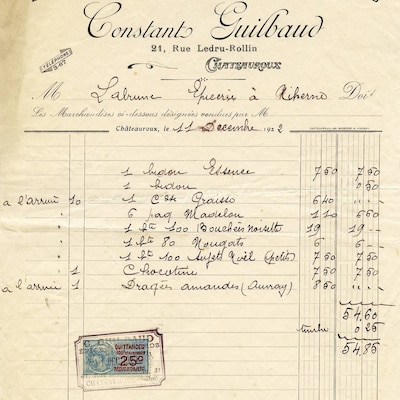 Constant Guilbaud
21, Rue Ledru-Rollin
CHATEAUROUX
TÉLÉPHONE
M Labrune Epicerie à Doit
Les Marchandises ci-dessous désignées vendues par M
Châteauroux, le 11 Décembre 1922
1 bidon Essence 7 50 7 50
1 bidon 0 50
a l'arrivée 10 1 Cse Graisso 6 40
" 6 paq Madelon 1 10 6 60
" 1 bte 100 Bouchées noisette 19 19 --
" 1 bte 80 Nougats 6 6 --
" 1 bte 100 Sujets Noël (petits) 7 50 7 50
" 1 Chocotine 7 50 7 50
a l'arrivée 1 Dragées amandes (Aunay) 8 50
54.60
timbre 0 25
54.85
C. GUILBAUD
QUITTANCES
25c